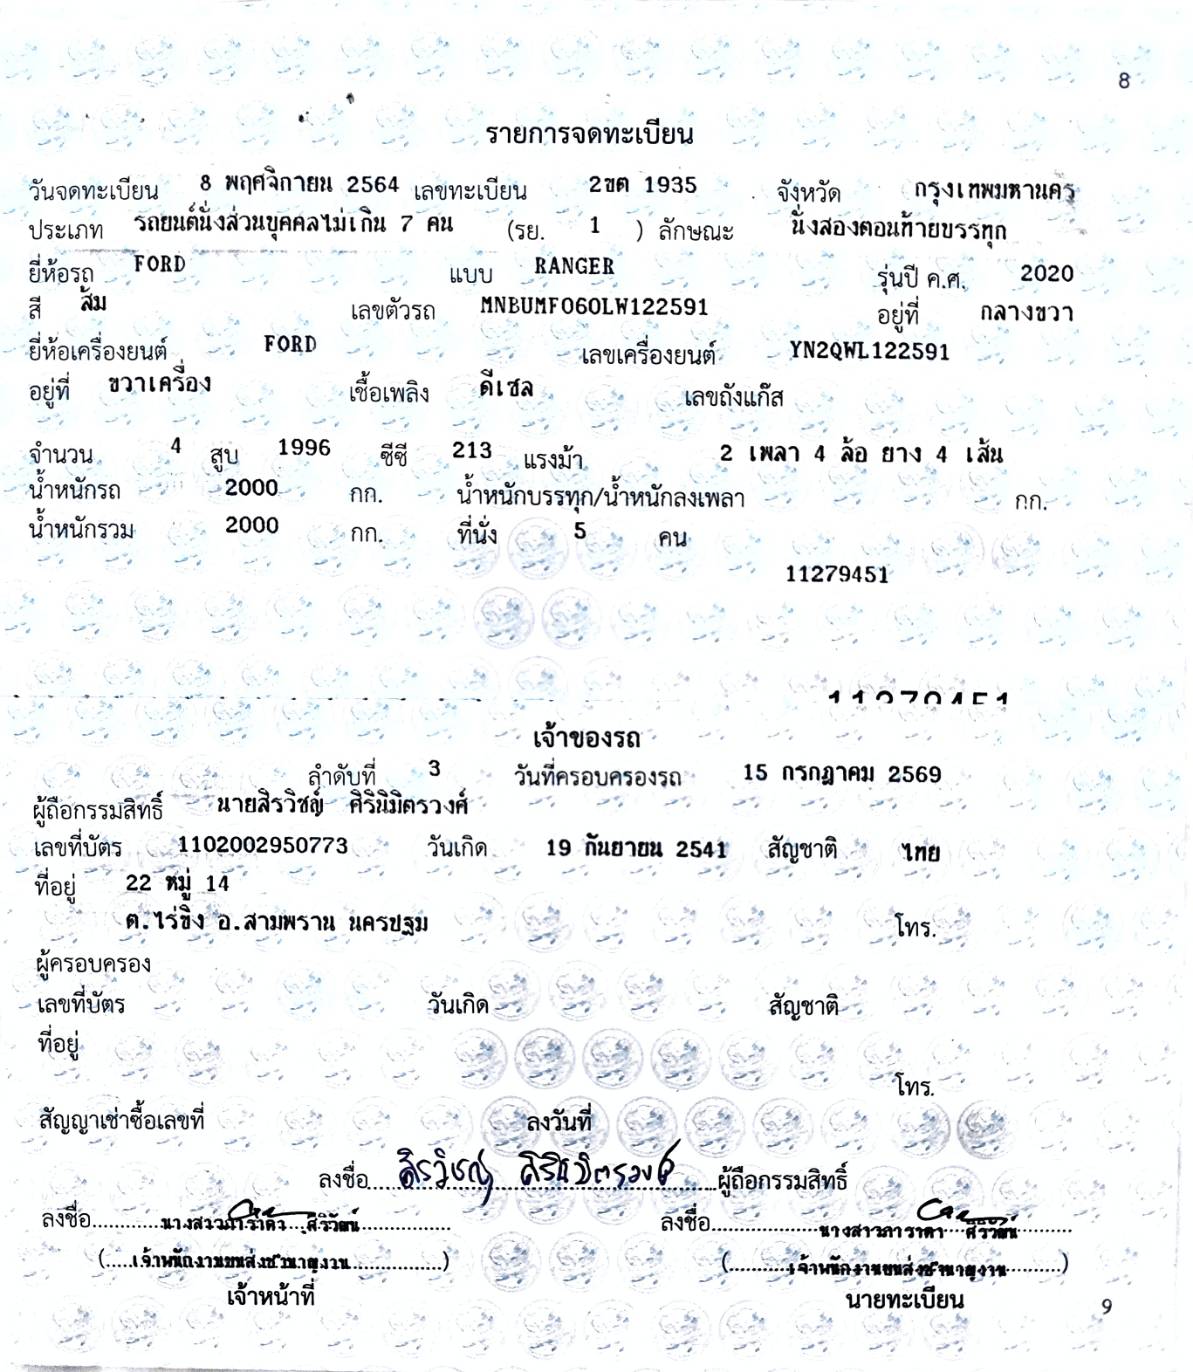 8
รายการจดทะเบียน
วันจดทะเบียน 8 พฤศจิกายน 2564 เลขทะเบียน 2ขต 1935 จังหวัด กรุงเทพมหานคร
ประเภท รถยนต์นั่งส่วนบุคคลไม่เกิน 7 คน (รย. 1 ) ลักษณะ นั่งสองตอนท้ายบรรทุก
ยี่ห้อรถ FORD แบบ RANGER รุ่นปี ค.ศ. 2020
สี ส้ม เลขตัวรถ MNBUMF060LW122591 อยู่ที่ กลางขวา
ยี่ห้อเครื่องยนต์ FORD เลขเครื่องยนต์ YN2QWL122591
อยู่ที่ ขวาเครื่อง เชื้อเพลิง ดีเซล เลขถังแก๊ส
จำนวน 4 สูบ 1996 ซีซี 213 แรงม้า 2 เพลา 4 ล้อ ยาง 4 เส้น
น้ำหนักรถ 2000 กก. น้ำหนักบรรทุก/น้ำหนักลงเพลา กก.
น้ำหนักรวม 2000 กก. ที่นั่ง 5 คน
11279451
11279451
เจ้าของรถ
ลำดับที่ 3 วันที่ครอบครองรถ 15 กรกฎาคม 2569
ผู้ถือกรรมสิทธิ์ นายสิรวิชญ์ ศิรินิมิตรวงศ์
เลขที่บัตร 1102002950773 วันเกิด 19 กันยายน 2541 สัญชาติ ไทย
ที่อยู่ 22 หมู่ 14
ต.ไร่ขิง อ.สามพราน นครปฐม โทร.
ผู้ครอบครอง
เลขที่บัตร วันเกิด สัญชาติ
ที่อยู่
โทร.
สัญญาเช่าซื้อเลขที่ ลงวันที่
ลงชื่อ สิรวิชญ์ ศิรินิมิตรวงศ์ ผู้ถือกรรมสิทธิ์
ลงชื่อ นางสาวภาราดา ศิริวัฒน์ ลงชื่อ นางสาวภาราดา ศิริวัฒน์
(เจ้าพนักงานขนส่งชำนาญงาน) (เจ้าพนักงานขนส่งชำนาญงาน)
เจ้าหน้าที่ นายทะเบียน
9